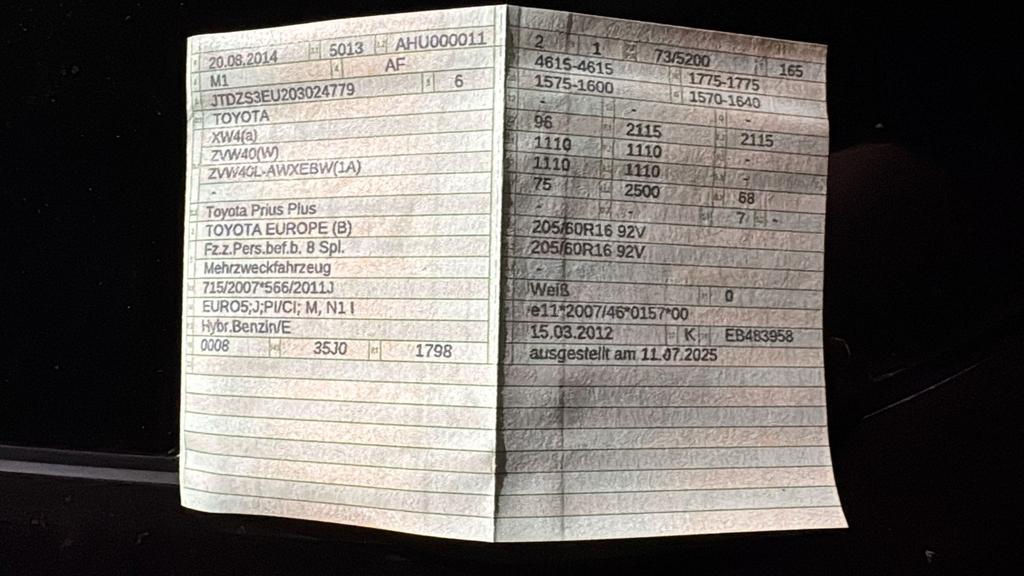 20.08.2014 5013 AHU000011
M1 AF
JTDZS3EU203024779 6
TOYOTA
XW4(a)
ZVW40(W)
ZVW40L-AWXEBW(1A)
-
Toyota Prius Plus
TOYOTA EUROPE (B)
Fz.z.Pers.bef.b. 8 Spl.
Mehrzweckfahrzeug
715/2007*566/2011J
EURO5;J;PI/CI; M, N1 I
Hybr.Benzin/E
0008 35J0 1798
2 1 73/5200 165
4615-4615 1775-1775
1575-1600 1570-1640
- - -
96 2115 2115
1110 1110 -
1110 1110 -
75 2500 68
- - 7 -
205/60R16 92V
205/60R16 92V
-
Weiß 0
e11*2007/46*0157*00
15.03.2012 K EB483958
ausgestellt am 11.07.2025